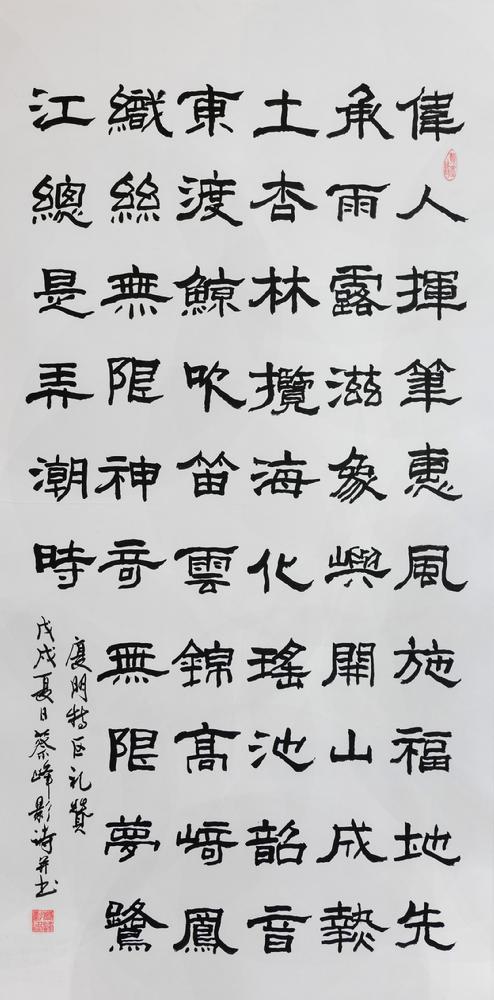 偉人揮筆惠風施福地先
承雨露滋象嶼開山成熱
土杏林攬海化瑤池韶音
東渡鯨吹笛雲錦高崎鳳
織絲無限神奇無限夢鷺
江總是弄潮時
厦門特区礼贊
戊戌夏日蔡峰影诗并书